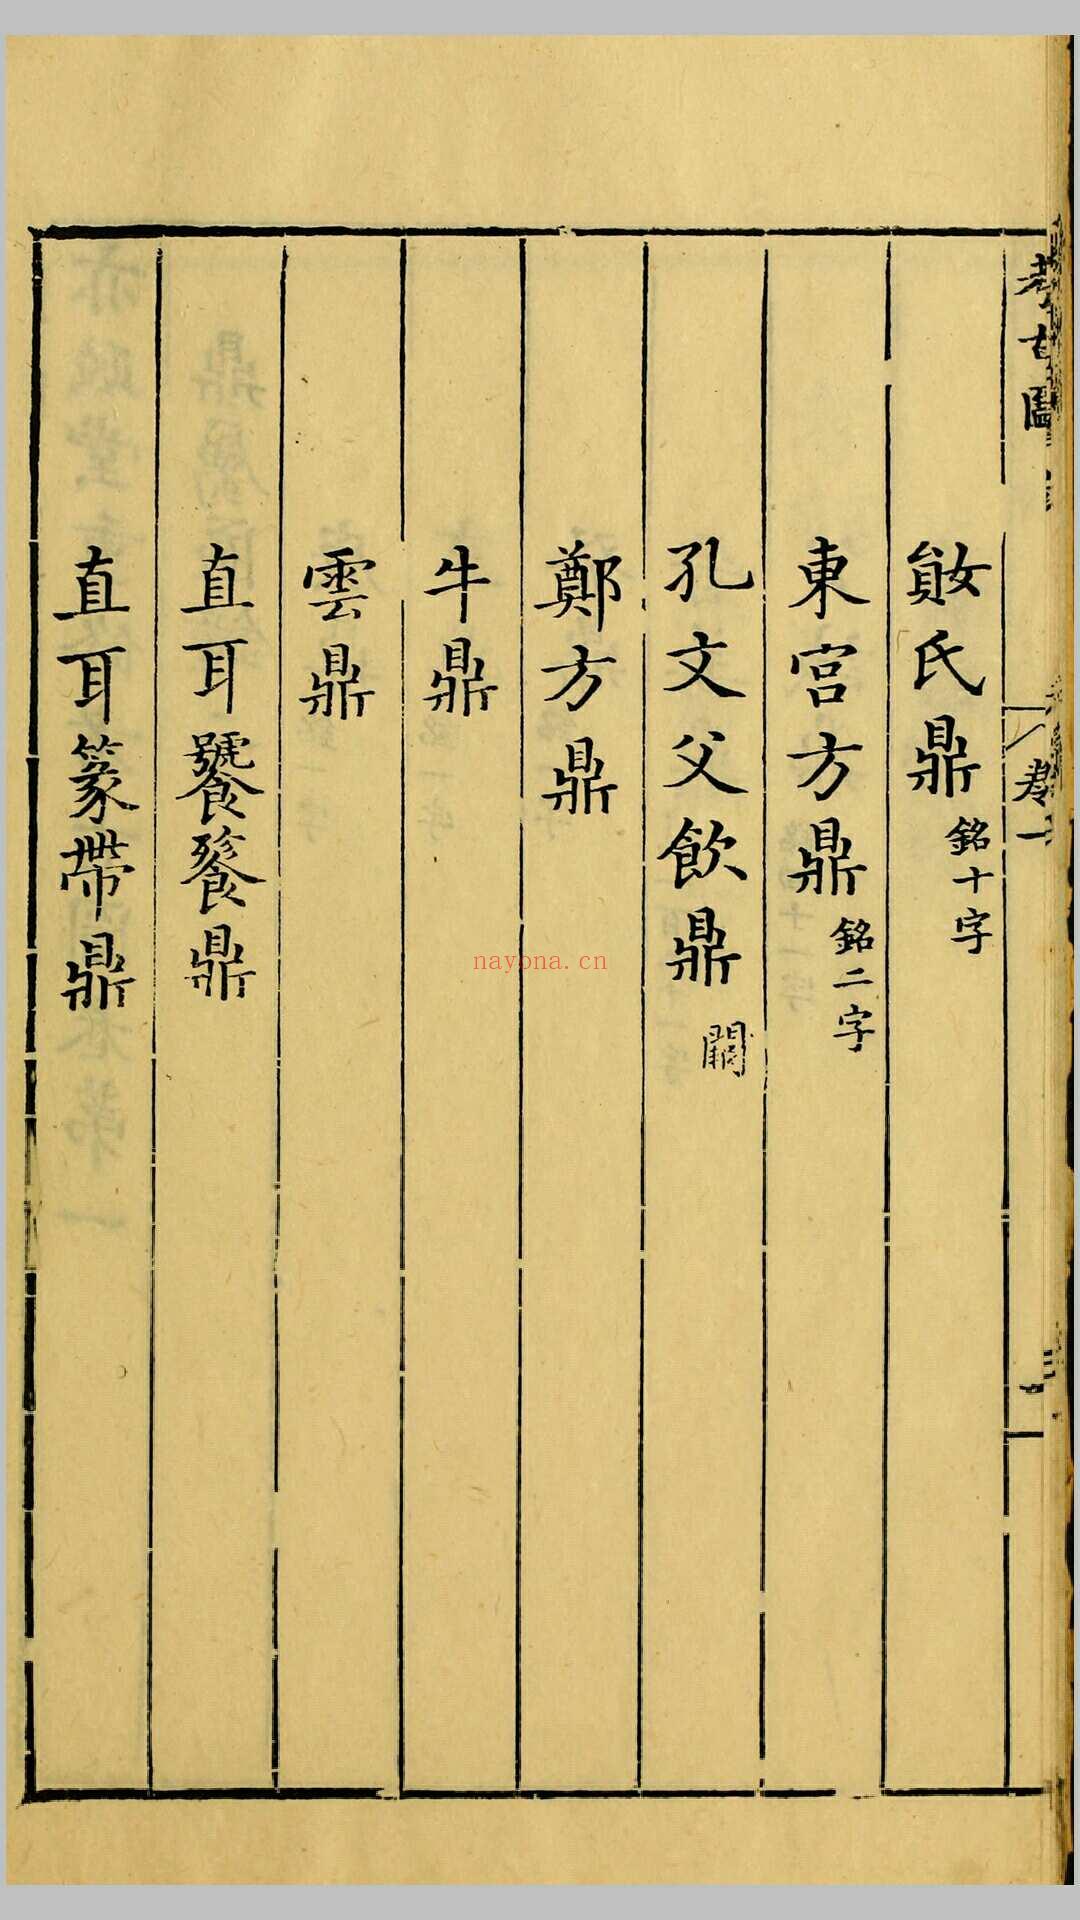 考古圖
卷一
𡠗氏鼎 銘十字
東宮方鼎 銘二字
孔文父飲鼎 闕
鄭方鼎
牛鼎
雲鼎
直耳饕餮鼎
直耳篆帶鼎
nayona.cn